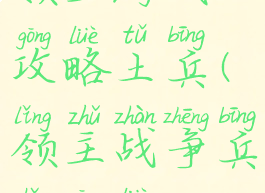 gōng lüè tǔ bīng
攻略土兵(
lǐng zhǔ zhàn zhēng bīng
领主战争兵